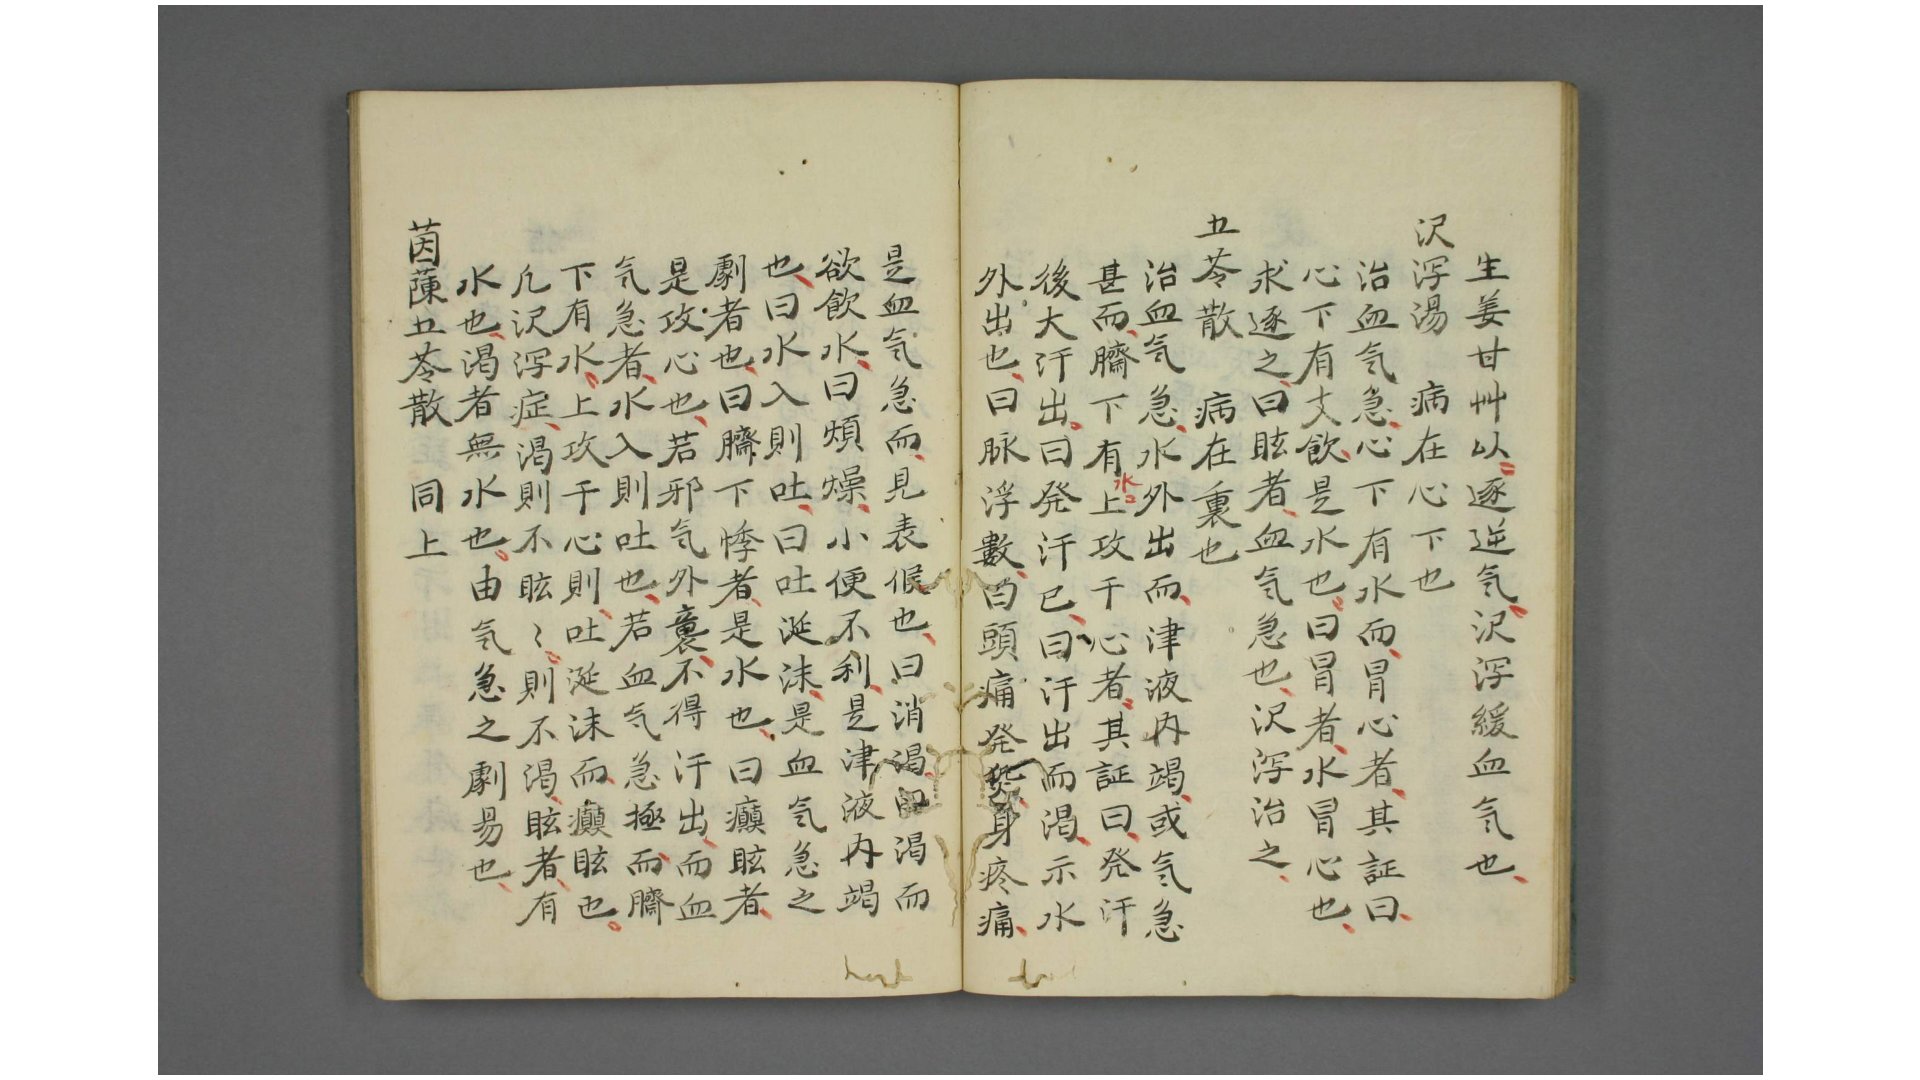 生姜甘艸以逐逆気沢泻緩血気也
沢泻湯 病在心下也
治血気急心下有水而冒心者其証曰
心下有支飲是水也曰冒者水冒心也
求逐之曰眩者血気急也沢泻治之
五苓散 病在裏也
治血気急水外出而津液内竭或気急
甚而臍下有水上攻干心者其証曰発汗
後大汗出曰発汗已曰汗出而渇示水
外出也曰脉浮數曰頭痛発熱身疼痛
是血気急而見表候也曰消渇曰渇而
欲飲水曰煩燥小便不利是津液内竭
也曰水入則吐曰吐涎沫是血気急之
劇者也曰臍下悸者是水也曰癲眩者
是攻心也若邪気外裏不得汗出而血
気急者水入則吐也若血気急極而臍
下有水上攻干心則吐涎沫而癲眩也
凡沢泻症渇則不眩〻則不渇眩者有
水也渇者無水也由気急之劇易也
茵蔯五苓散 同上